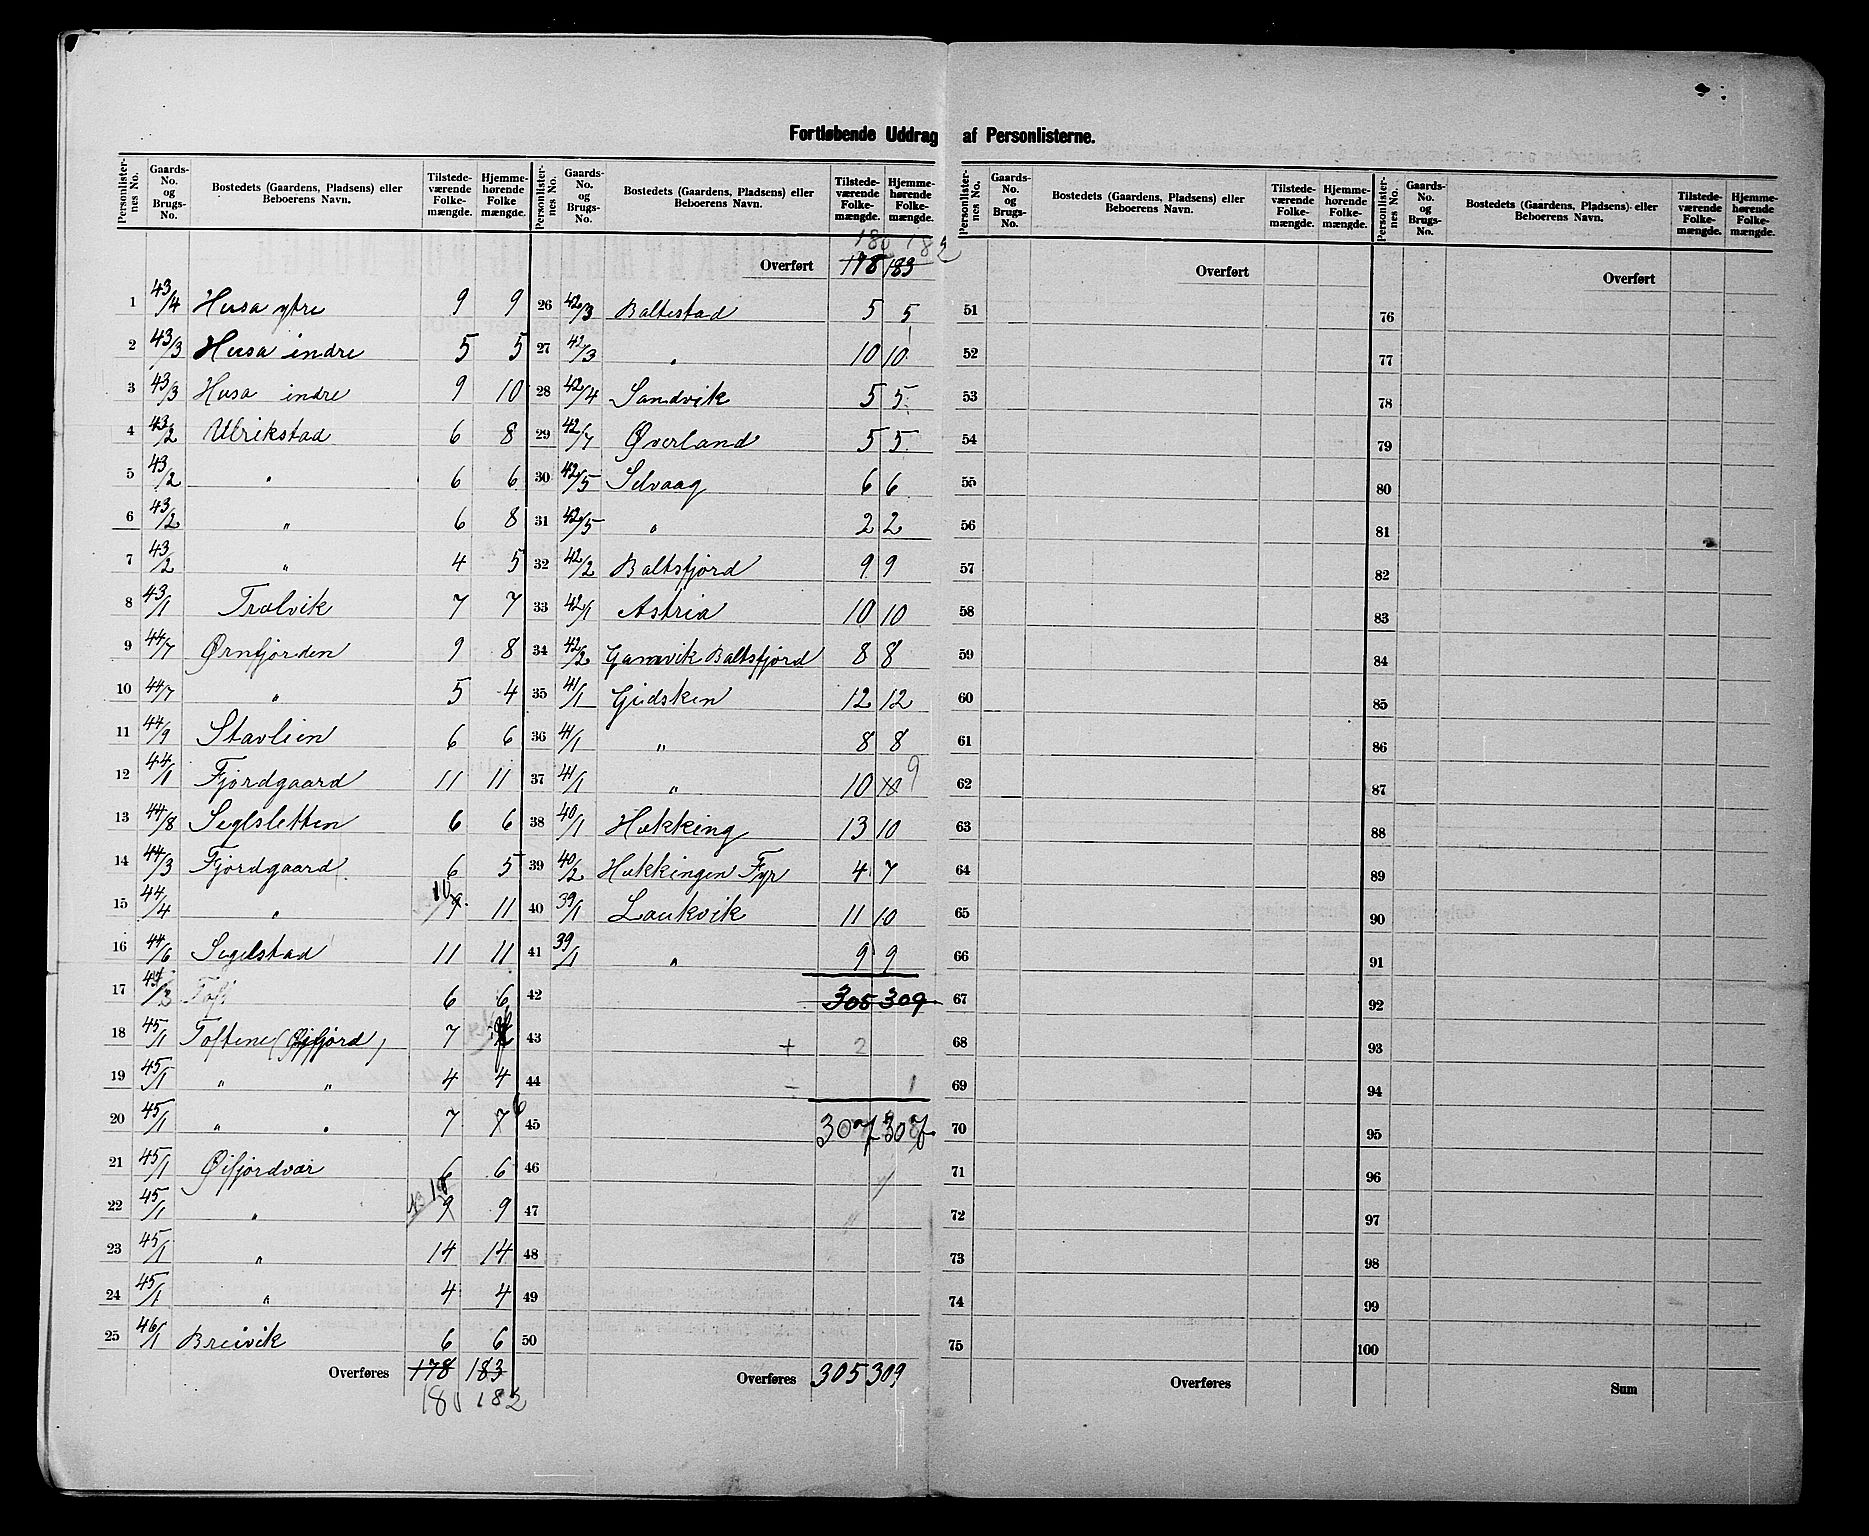 Fortløbende Uddrag af Personlisterne.
Personlisternes No. Gaards-No. og Brugs-No. Bostedets (Gaardens, Pladsens) eller Beboerens Navn. Tilstedeværende Folkemængde. Hjemmehørende Folkemængde.
1 43/4 Husa ytre 9 9
2 43/3 Husa indre 5 5
3 43/3 Husa indre 9 10
4 43/2 Ulrikstad 6 8
5 43/2 " 6 6
6 43/2 " 6 8
7 43/2 " 4 5
8 43/1 Trælvik 7 7
9 44/7 Ørnfjorden 9 8
10 44/7 " 5 4
11 44/9 Stavlien 6 6
12 44/1 Fjordgaard 11 11
13 44/8 Seglsletten 6 6
14 44/3 Fjordgaard 6 5
15 44/4 " 10 9 11
16 44/6 Segelstad 11 11
17 6 6
18 45/1 Toftene (Øifjord) 7
19 45/1 " " 4 4
20 45/1 " " 7 7 6
21 45/1 Øifjordvær 6 6
22 45/1 " 10 9 9
23 45/1 " 14 14
24 45/1 " 4 4
25 46/1 Breivik 6 6
Overføres 178 183
180 182
Personlisternes No. Gaards-No. og Brugs-No. Bostedets (Gaardens, Pladsens) eller Beboerens Navn. Tilstedeværende Folkemængde. Hjemmehørende Folkemængde.
180 182
Overført 178 183
26 42/3 Baltestad 5 5
27 42/3 " 10 10
28 42/4 Sandvik 5 5
29 42/7 Øverland 5 5
30 42/5 Selvaag 6 6
31 42/5 " 2 2
32 42/2 Baltsfjord 9 9
33 42/1 Astria 10 10
34 42/2 Gamvik Baltsfjord 8 8
35 41/1 Gidsken 12 12
36 41/1 " 8 8
37 41/1 " 10 10 9
38 40/1 Hekking 13 10
39 40/2 Hekkingen Fyr 4 7
40 39/1 Laukvik 11 10
41 39/1 " 9 9
42 305 309
43 + 2
44 - 1
45 307 307
46
47
48
49
50
Overføres 305 309
Personlisternes No. Gaards-No. og Brugs-No. Bostedets (Gaardens, Pladsens) eller Beboerens Navn. Tilstedeværende Folkemængde. Hjemmehørende Folkemængde.
Overført
51
52
53
54
55
56
57
58
59
60
61
62
63
64
65
66
67
68
69
70
71
72
73
74
75
Overføres
Personlisternes No. Gaards-No. og Brugs-No. Bostedets (Gaardens, Pladsens) eller Beboerens Navn. Tilstedeværende Folkemængde. Hjemmehørende Folkemængde.
Overført
76
77
78
79
80
81
82
83
84
85
86
87
88
89
90
91
92
93
94
95
96
97
98
99
100
Sum